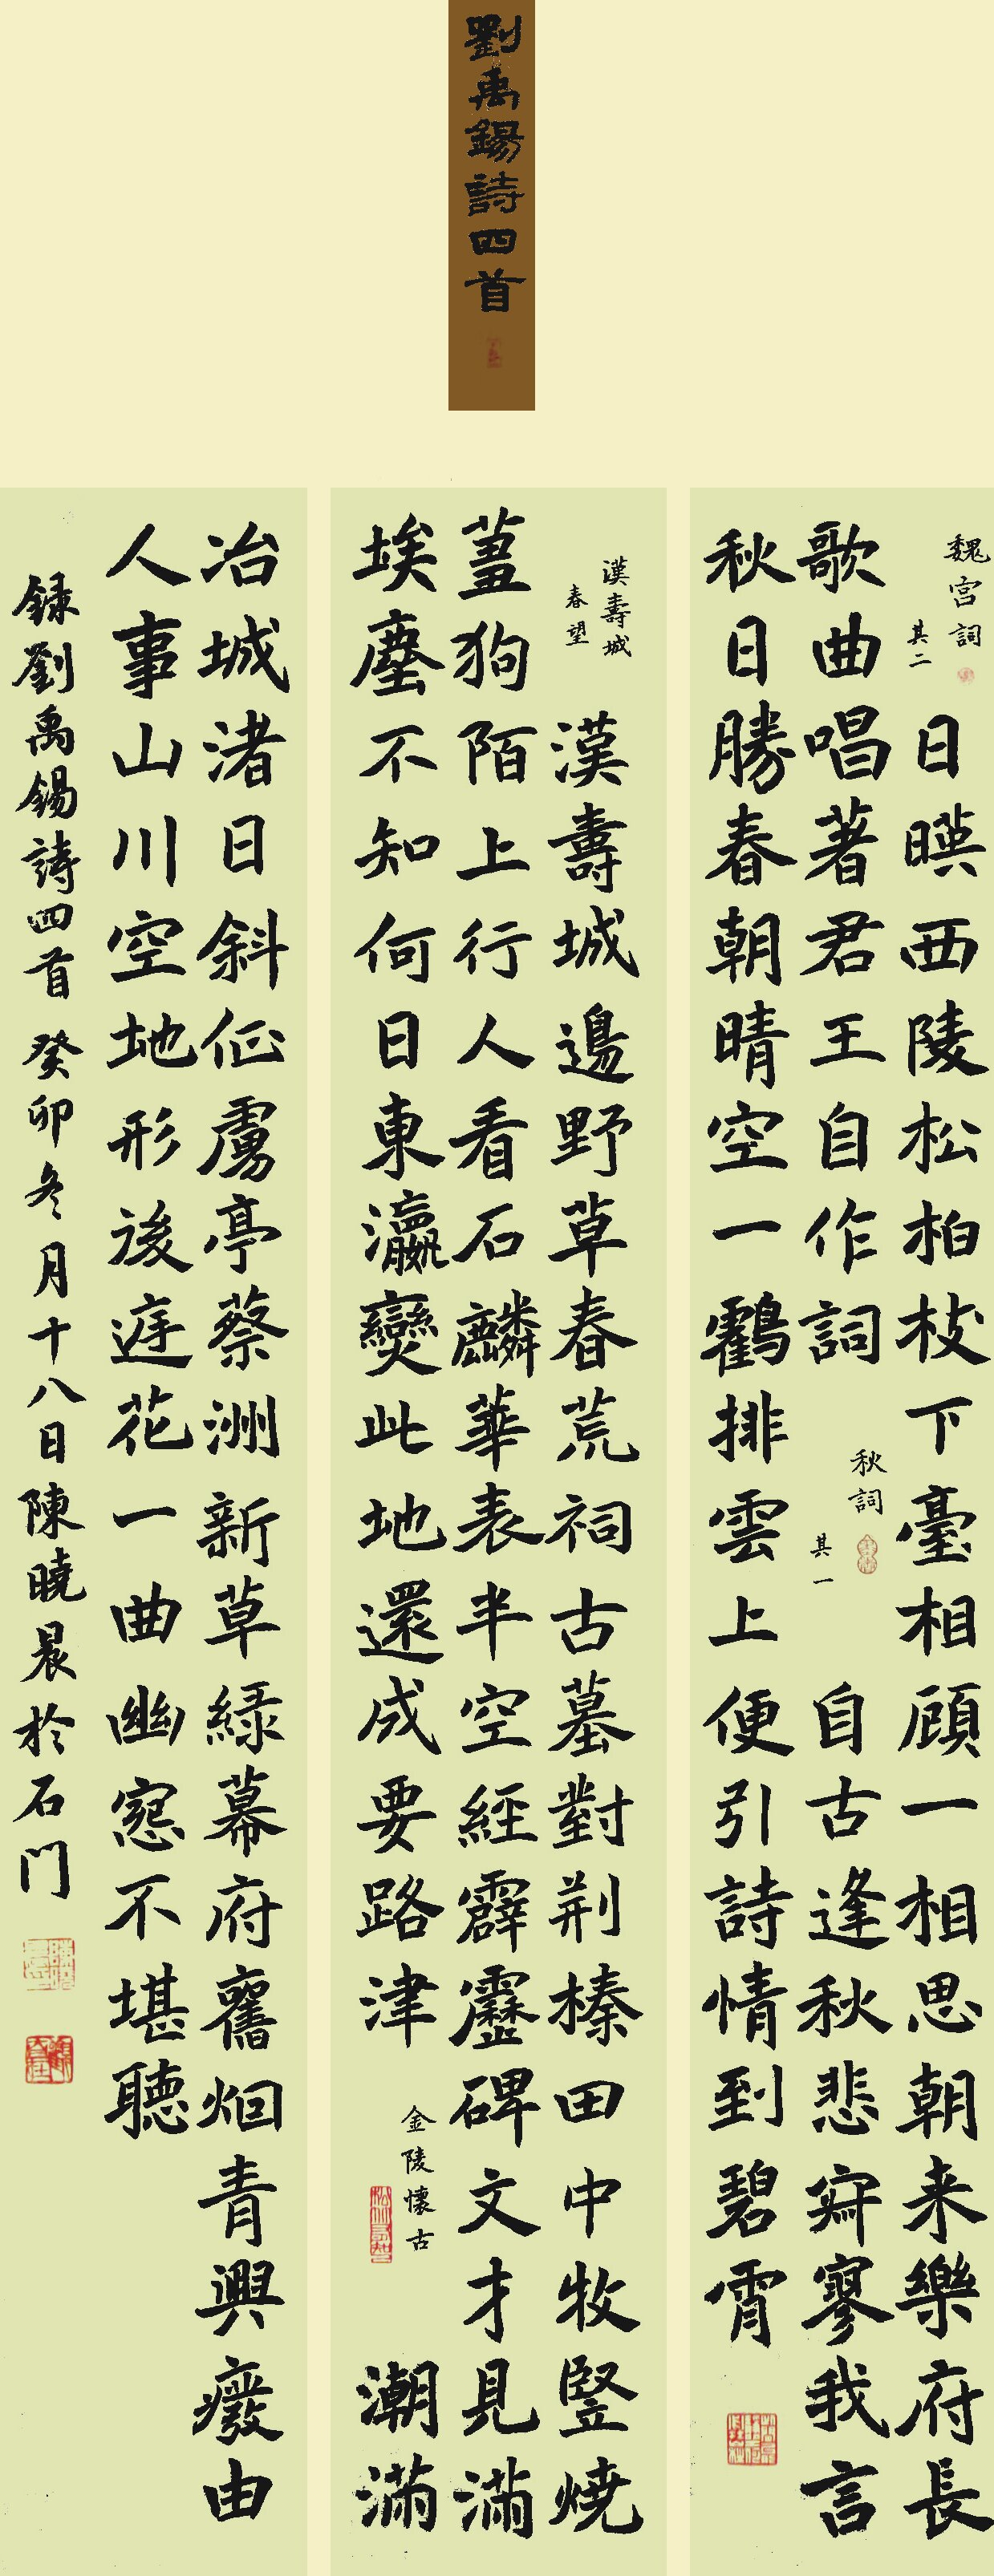 劉禹錫詩四首
魏宫詞
其二
日暎西陵松柏枝下臺相顧一相思朝来樂府長
歌曲唱著君王自作詞
秋詞
其一
自古逢秋悲寂寥我言
秋日勝春朝晴空一鶴排雲上便引詩情到碧霄
漢壽城
春望
漢壽城邊野草春荒祠古墓對荆榛田中牧豎燒
蓋狗陌上行人看石麟華表半空經霹靂碑文才見滿
埃塵不知何日東瀛變此地還成要路津
金陵懷古
潮滿
冶城渚日斜征虜亭蔡洲新草緑幕府舊烟青興廢由
人事山川空地形後庭花一曲幽怨不堪聽
録劉禹錫詩四首癸卯冬月十八日陳曉晨於石门